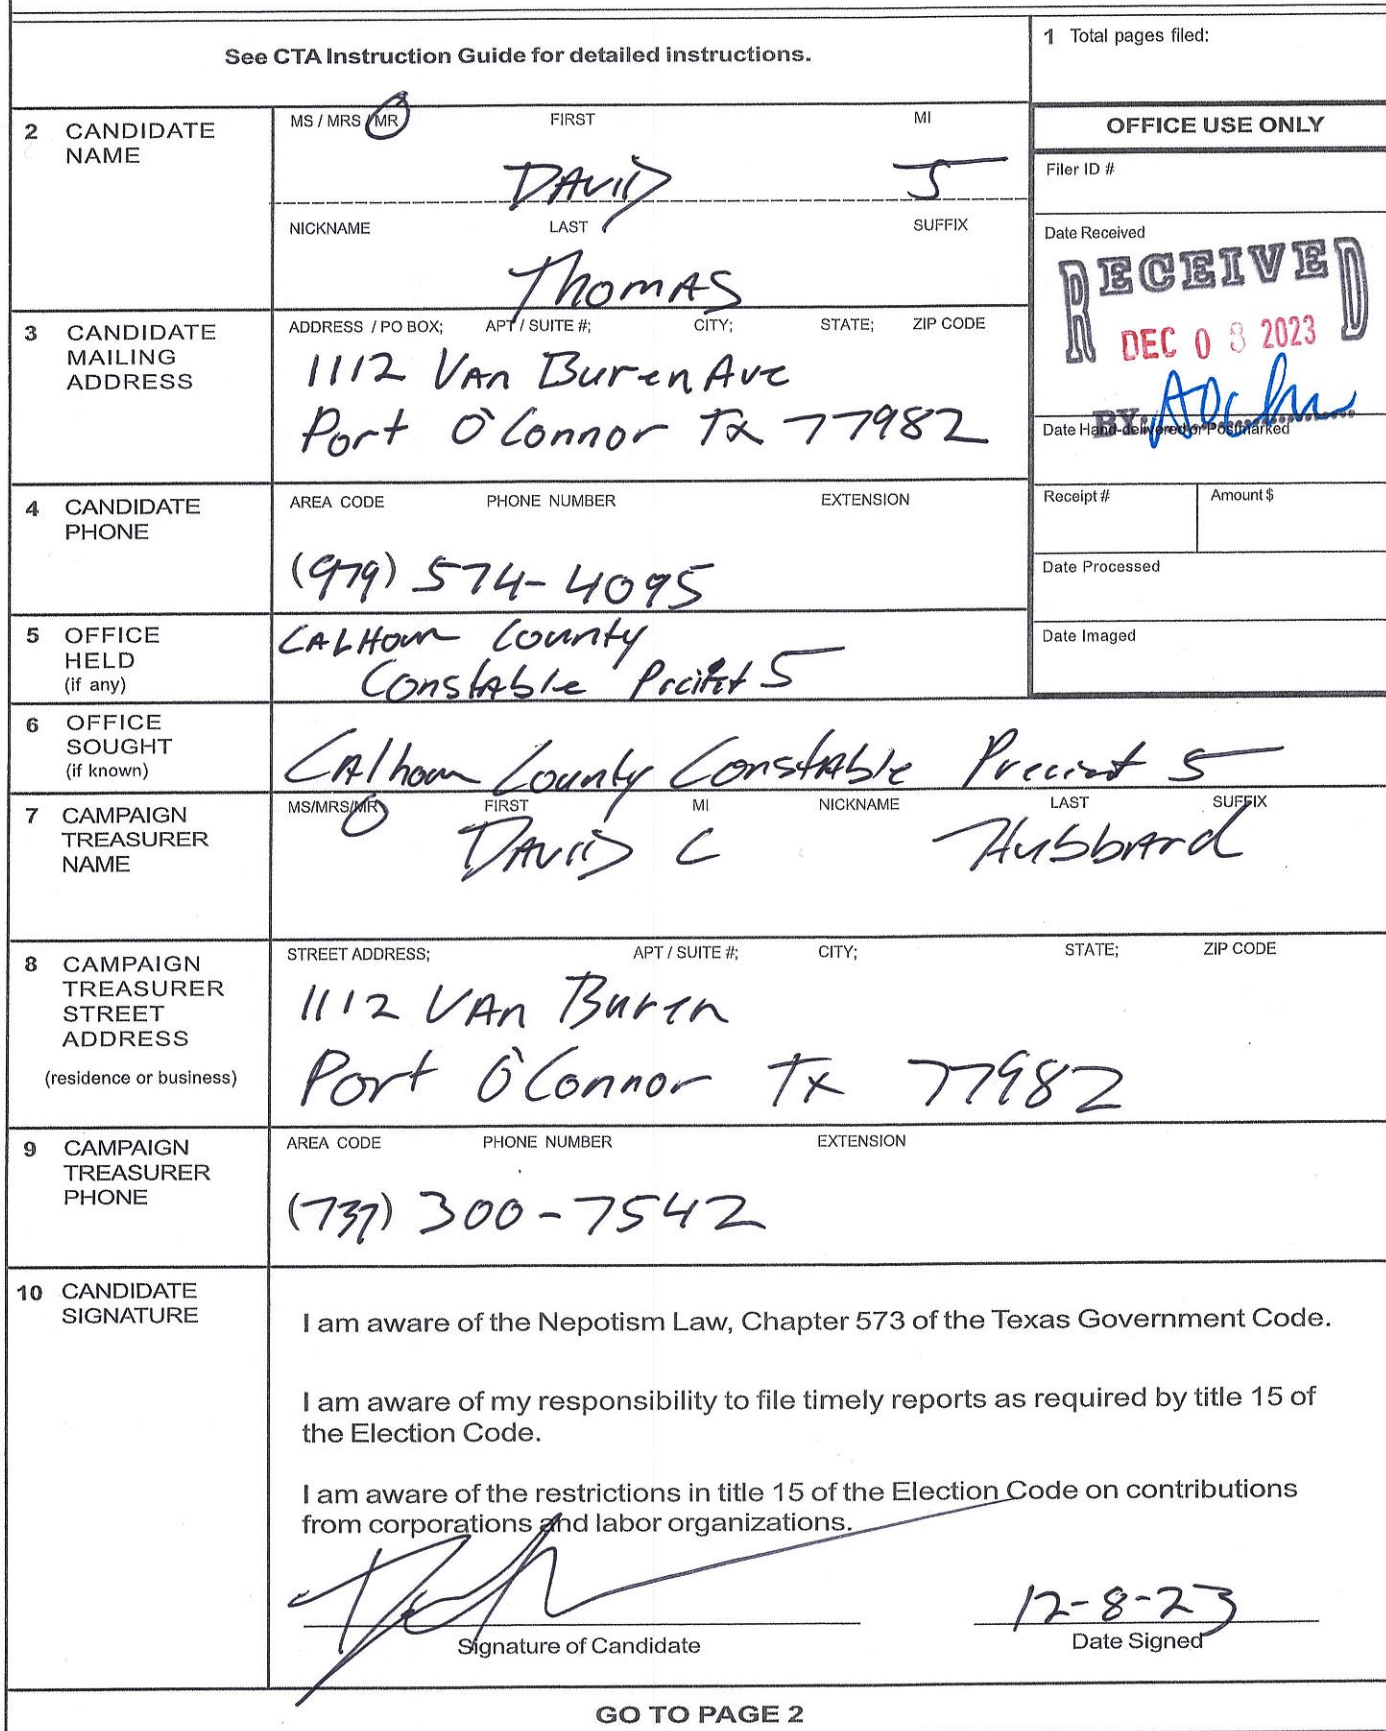 See CTA Instruction Guide for detailed instructions.
1 Total pages filed:
2 CANDIDATE NAME
MS / MRS / MR FIRST MI
DAVID J
NICKNAME LAST SUFFIX
Thomas
OFFICE USE ONLY
Filer ID #
Date Received
RECEIVED
DEC 0 8 2023
BY:
Date Hand-delivered or Postmarked
Receipt # Amount $
Date Processed
Date Imaged
3 CANDIDATE MAILING ADDRESS
ADDRESS / PO BOX; APT / SUITE #; CITY; STATE; ZIP CODE
1112 Van Buren Ave
Port O'Connor Tx 77982
4 CANDIDATE PHONE
AREA CODE PHONE NUMBER EXTENSION
(979) 574-4095
5 OFFICE HELD (if any)
Calhoun County
Constable 5
6 OFFICE SOUGHT (if known)
Calhoun County Constable Precinct 5
7 CAMPAIGN TREASURER NAME
MS/MRS/MR FIRST MI NICKNAME LAST SUFFIX
DAVID C Hubbard
8 CAMPAIGN TREASURER STREET ADDRESS (residence or business)
STREET ADDRESS; APT / SUITE #; CITY; STATE; ZIP CODE
1112 Van Buren
Port O'Connor Tx 77982
9 CAMPAIGN TREASURER PHONE
AREA CODE PHONE NUMBER EXTENSION
(737) 300-7542
10 CANDIDATE SIGNATURE
I am aware of the Nepotism Law, Chapter 573 of the Texas Government Code.
I am aware of my responsibility to file timely reports as required by title 15 of
the Election Code.
I am aware of the restrictions in title 15 of the Election Code on contributions
from corporations and labor organizations.
12-8-23
Signature of Candidate Date Signed
GO TO PAGE 2